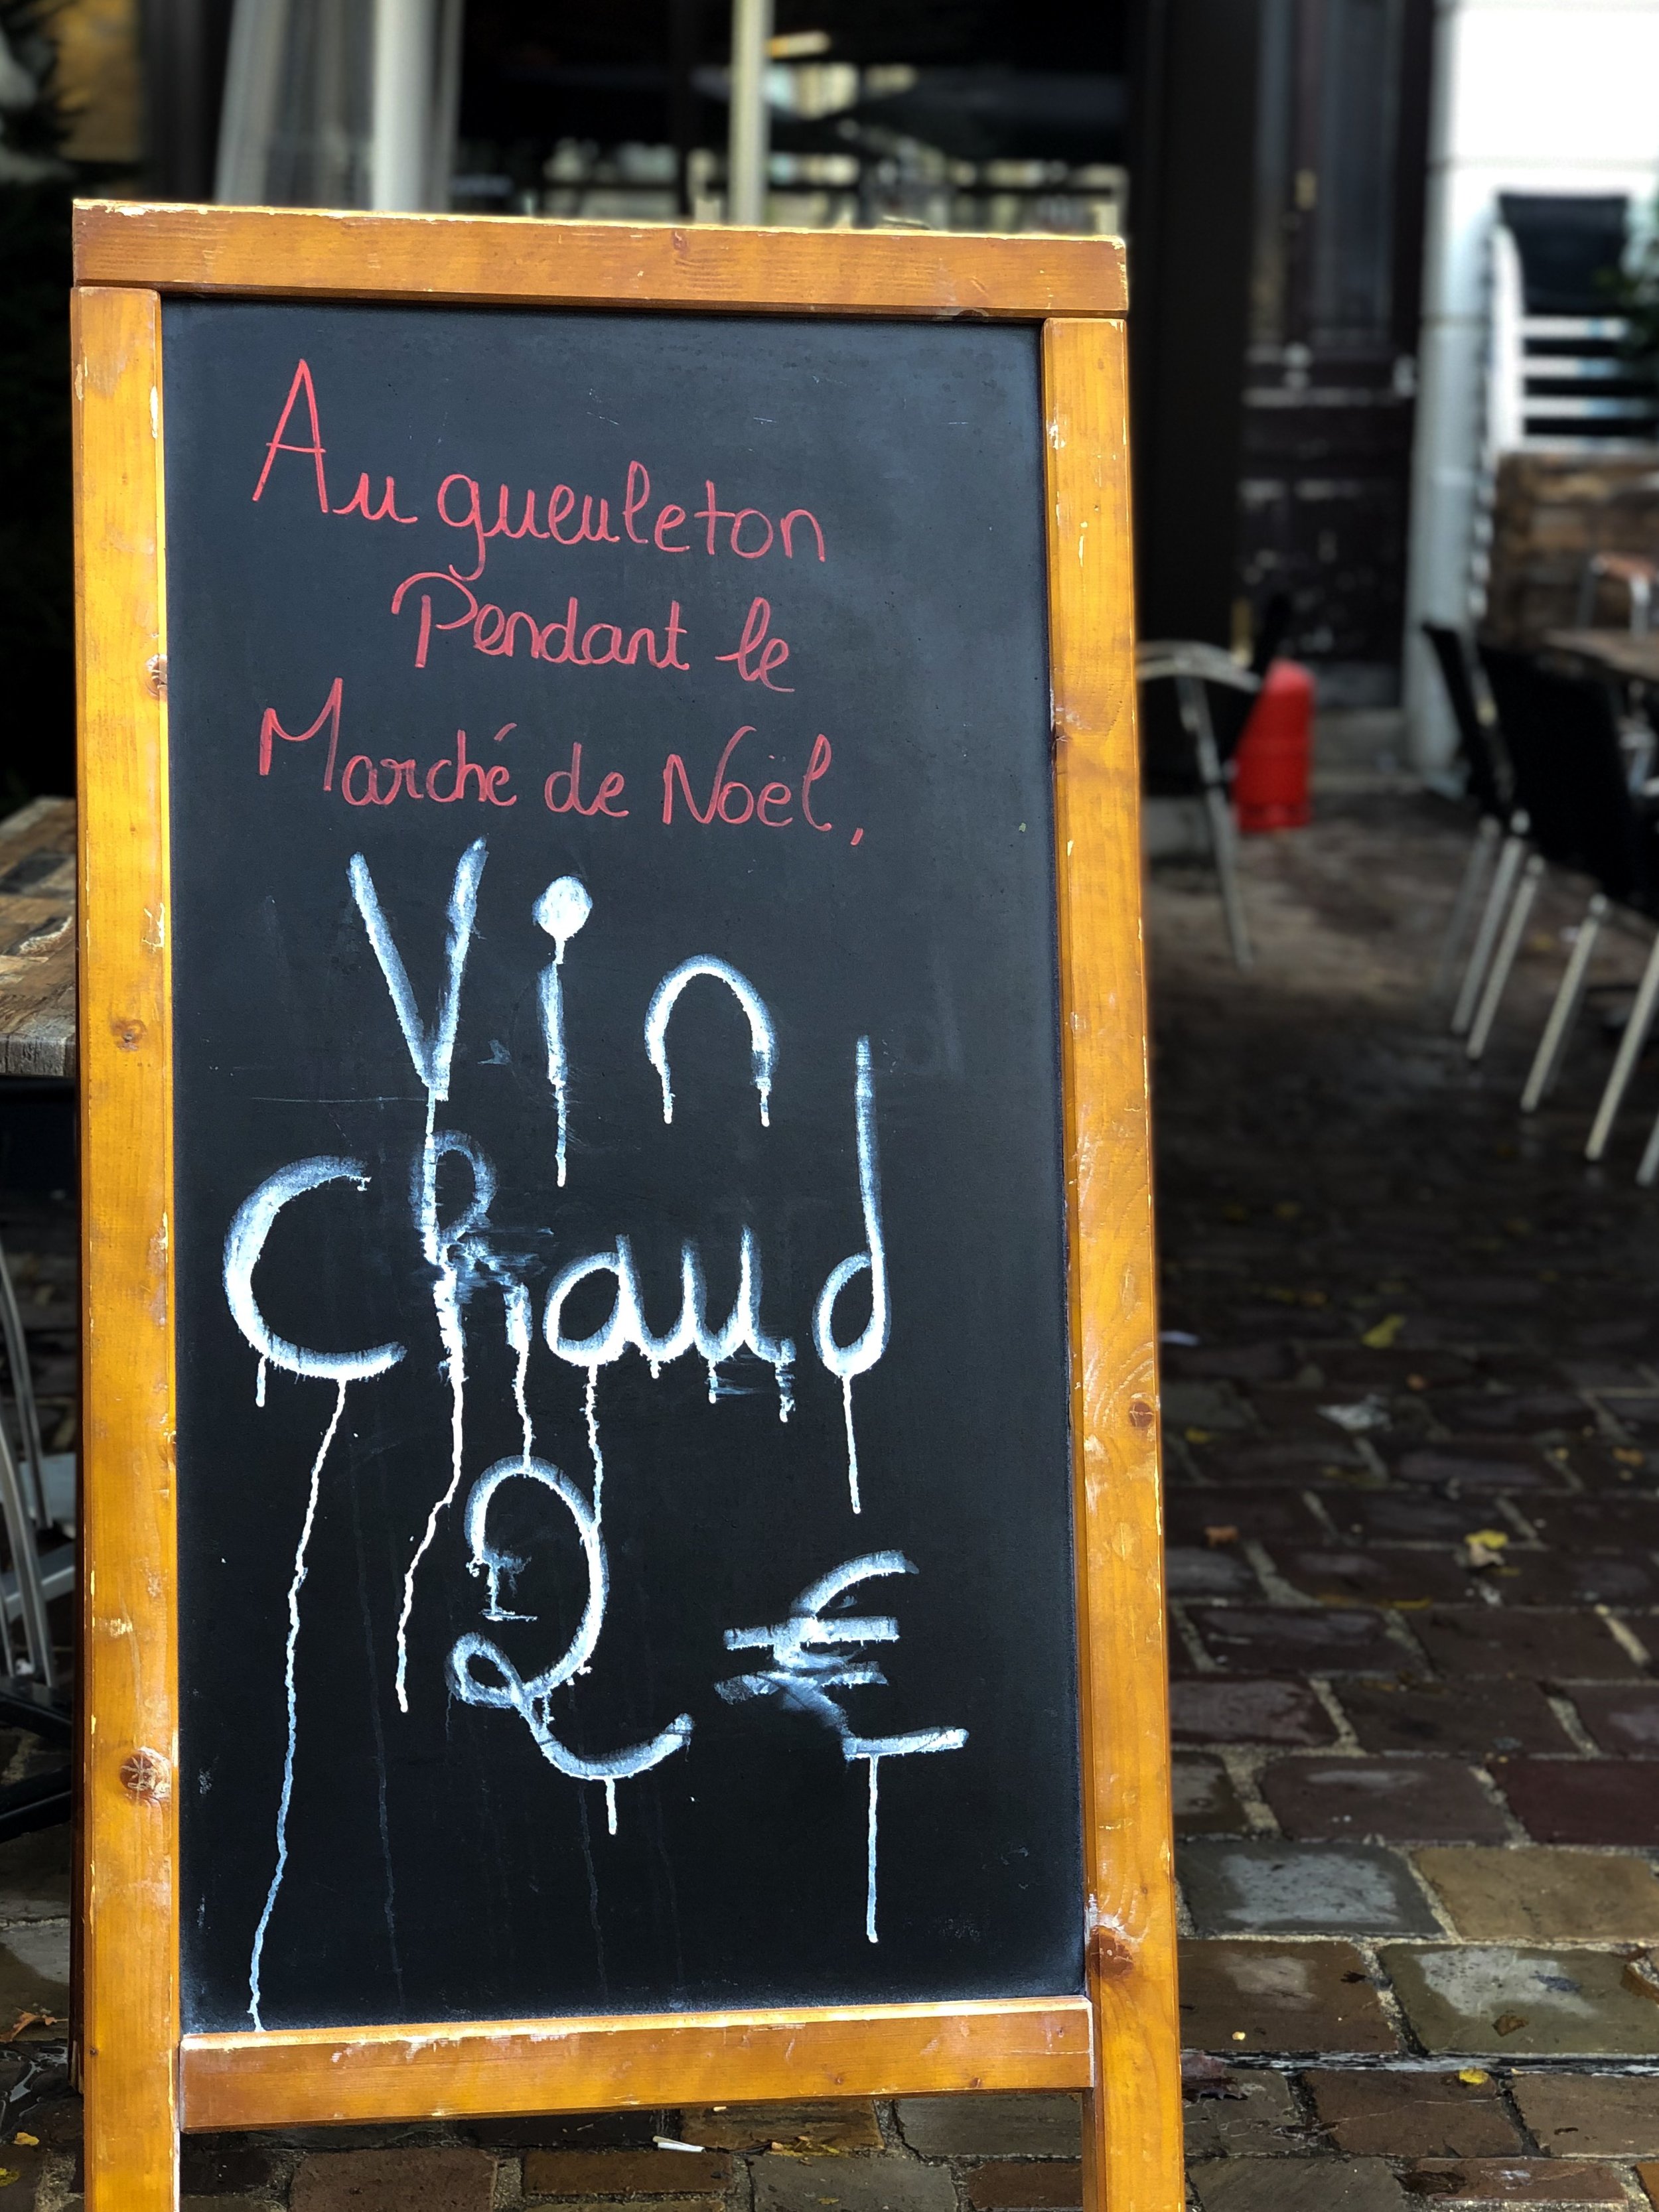 Au gueuleton
Pendant le
Marché de Noël,
Vin
Chaud
2 €